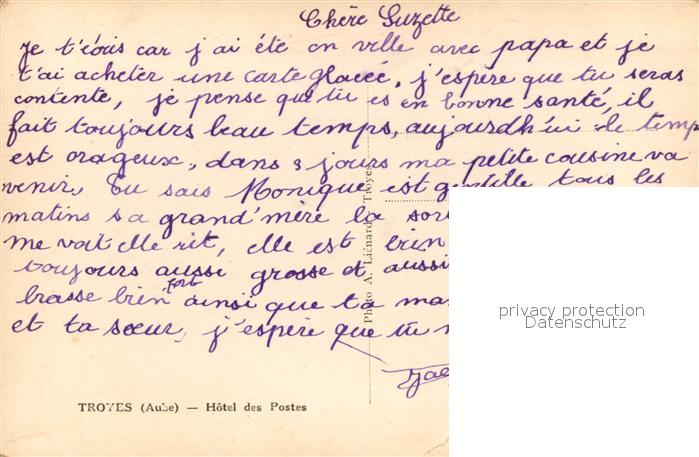 Chère Suzette
Je t'écris car j'ai été en ville avec papa et je
t'ai acheter une carte glacée, j'espère que tu seras
contente, je pense que tu es en bonne santé, il
fait toujours beau temps, aujourdh'ui le temps
est orageux, dans 8 jours ma petite cousine va
venir, tu sais Monique est gentille tous les
matins sa grand'mère la
me voit elle rit, elle est bien
toujours aussi grosse et aussi
brasse bien fort ainsi que ta
et ta sœur, j'espère que tu
Photo A. Liénard, Troyes
privacy protection
Datenschutz
TROYES (Aube) — Hôtel des Postes